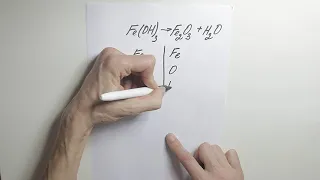 Fe(OH)₃→Fe₂O₃+H₂O
Fe | Fe
O